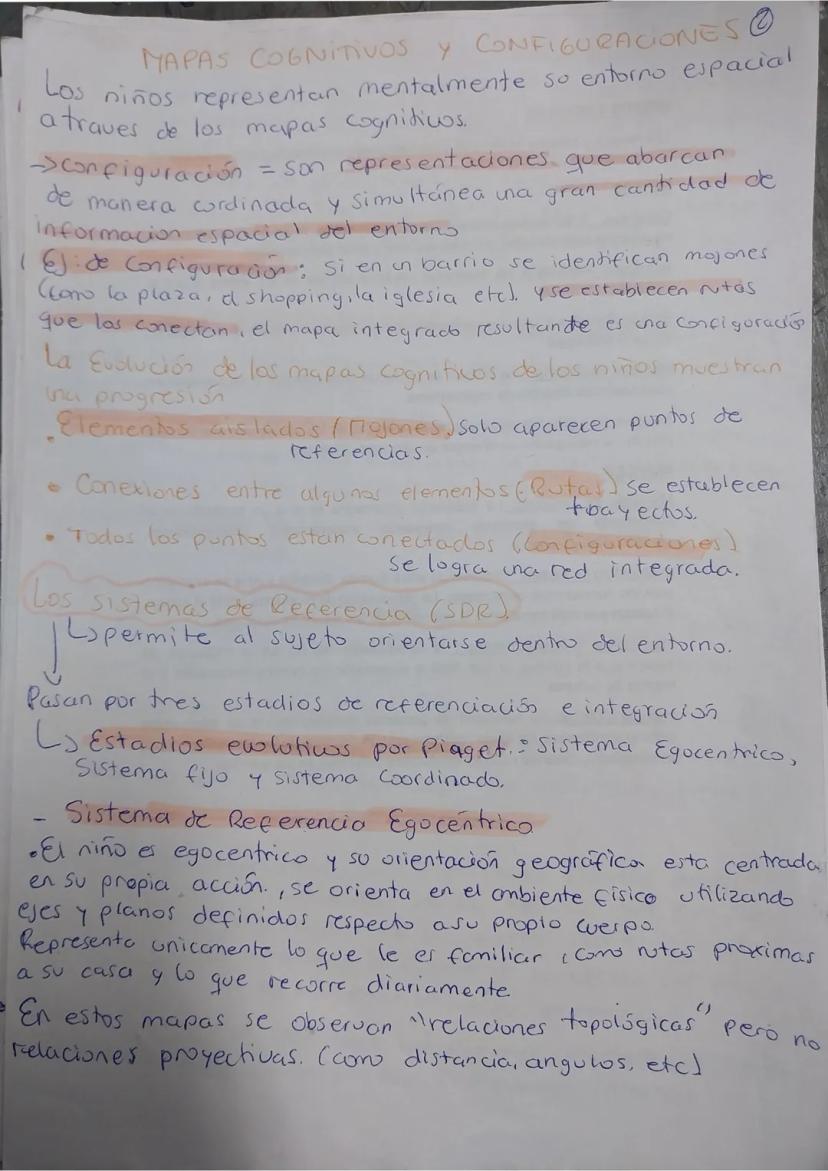 MAPAS COGNITIVOS Y CONFIGURACIONES ②
Los niños representan mentalmente so entorno espacial
a traves de los mapas cognitivos.
→ configuración = son representaciones que abarcan
de manera cordinada y simultánea una gran cantidad de
informacion espacial del entorno
Ej: de configuración: si en un barrio se identifican mojones
(como la plaza, el shopping, la iglesia etc). y se establecen rutas
que los conectan, el mapa integrado resultande es una configuración
La Evolución de los mapas cognitivos de los niños muestran
una progresión
. Elementos aislados (Mojones) solo aparecen puntos de
referencias.
• Conexiones entre algunos elementos (Rutas) se establecen
trayectos.
• Todos los puntos están conectados (configuraciones)
se logra una red integrada.
Los sistemas de Referencia (SDR).
↳ permite al sujeto orientarse dentro del entorno.
Pasan por tres estadios de referenciación e integración
↳ Estadios evolutivos por Piaget.: Sistema Egocentrico,
Sistema fijo y sistema Coordinado.
- Sistema de Referencia Egocéntrico
• El niño es egocentrico y so orientación geográfica esta centrada
en su propia acción., se orienta en el ambiente físico utilizando
ejes y planos definidos respecto a su propio cuerpo.
Representa unicamente lo que le es familiar, como rutas proximas
a su casa y lo que recorre diariamente
• En estos mapas se observan "relaciones topológicas" pero no
relaciones proyectivas. (como distancia, angulos, etc)